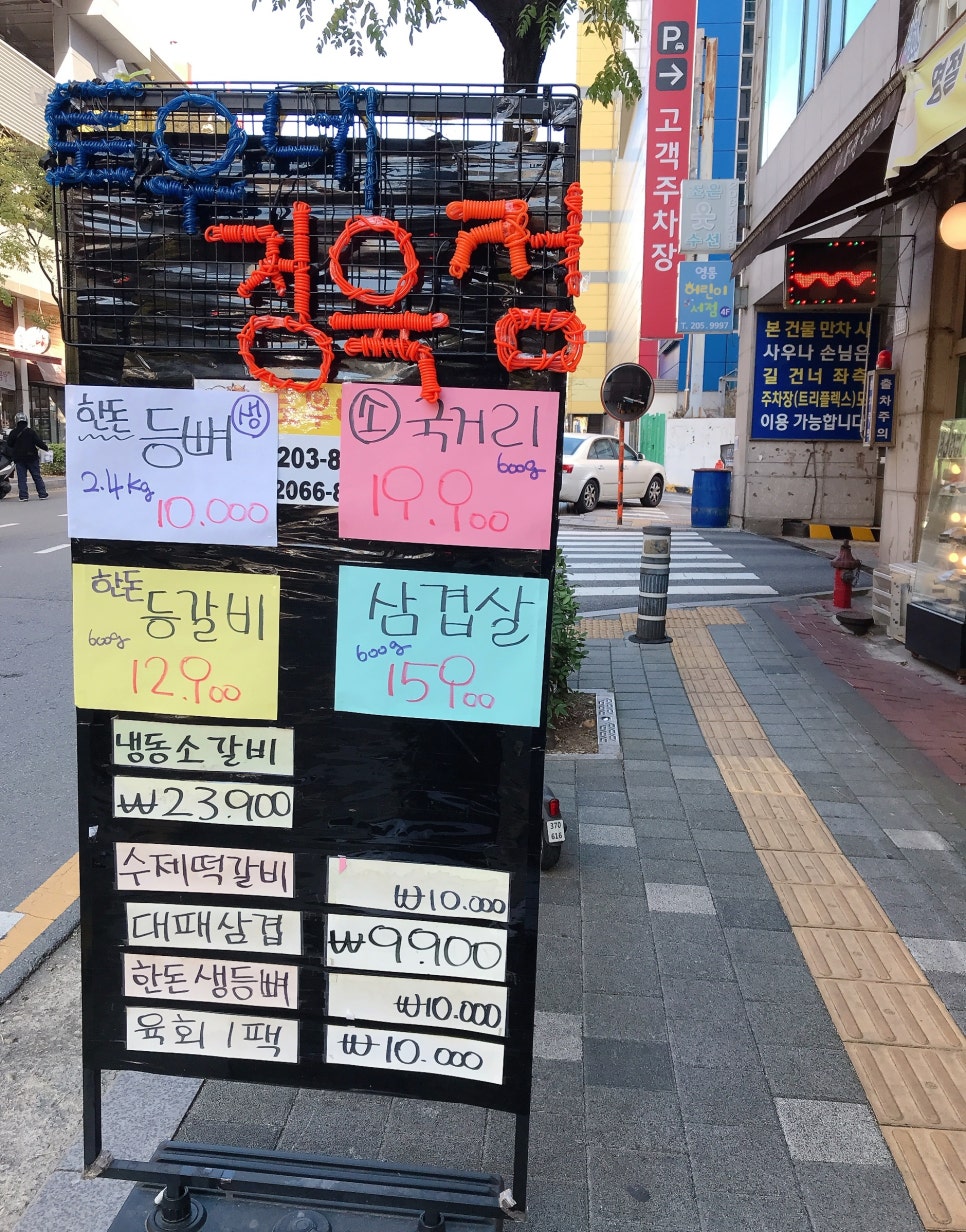 통영시
정육점
한돈
등뼈
생
2.4kg
10.000
203-8
2066-8
소 국거리
600g
19.900
한돈
등갈비
600g
12.900
삼겹살
600g
15900
냉동소갈비
₩23.900
수제떡갈비
₩10.000
대패삼겹
₩9.900
한돈생등뼈
₩10.000
육회 1팩
₩10.000
P
→
고객주차장
영통
어린이
서점
4F
T. 205.9997
본 건물 만차 시
사우나 손님은
길 건너 좌측
주차장(트리플렉스)도
이용 가능합니다
출차주의
명절
370
616